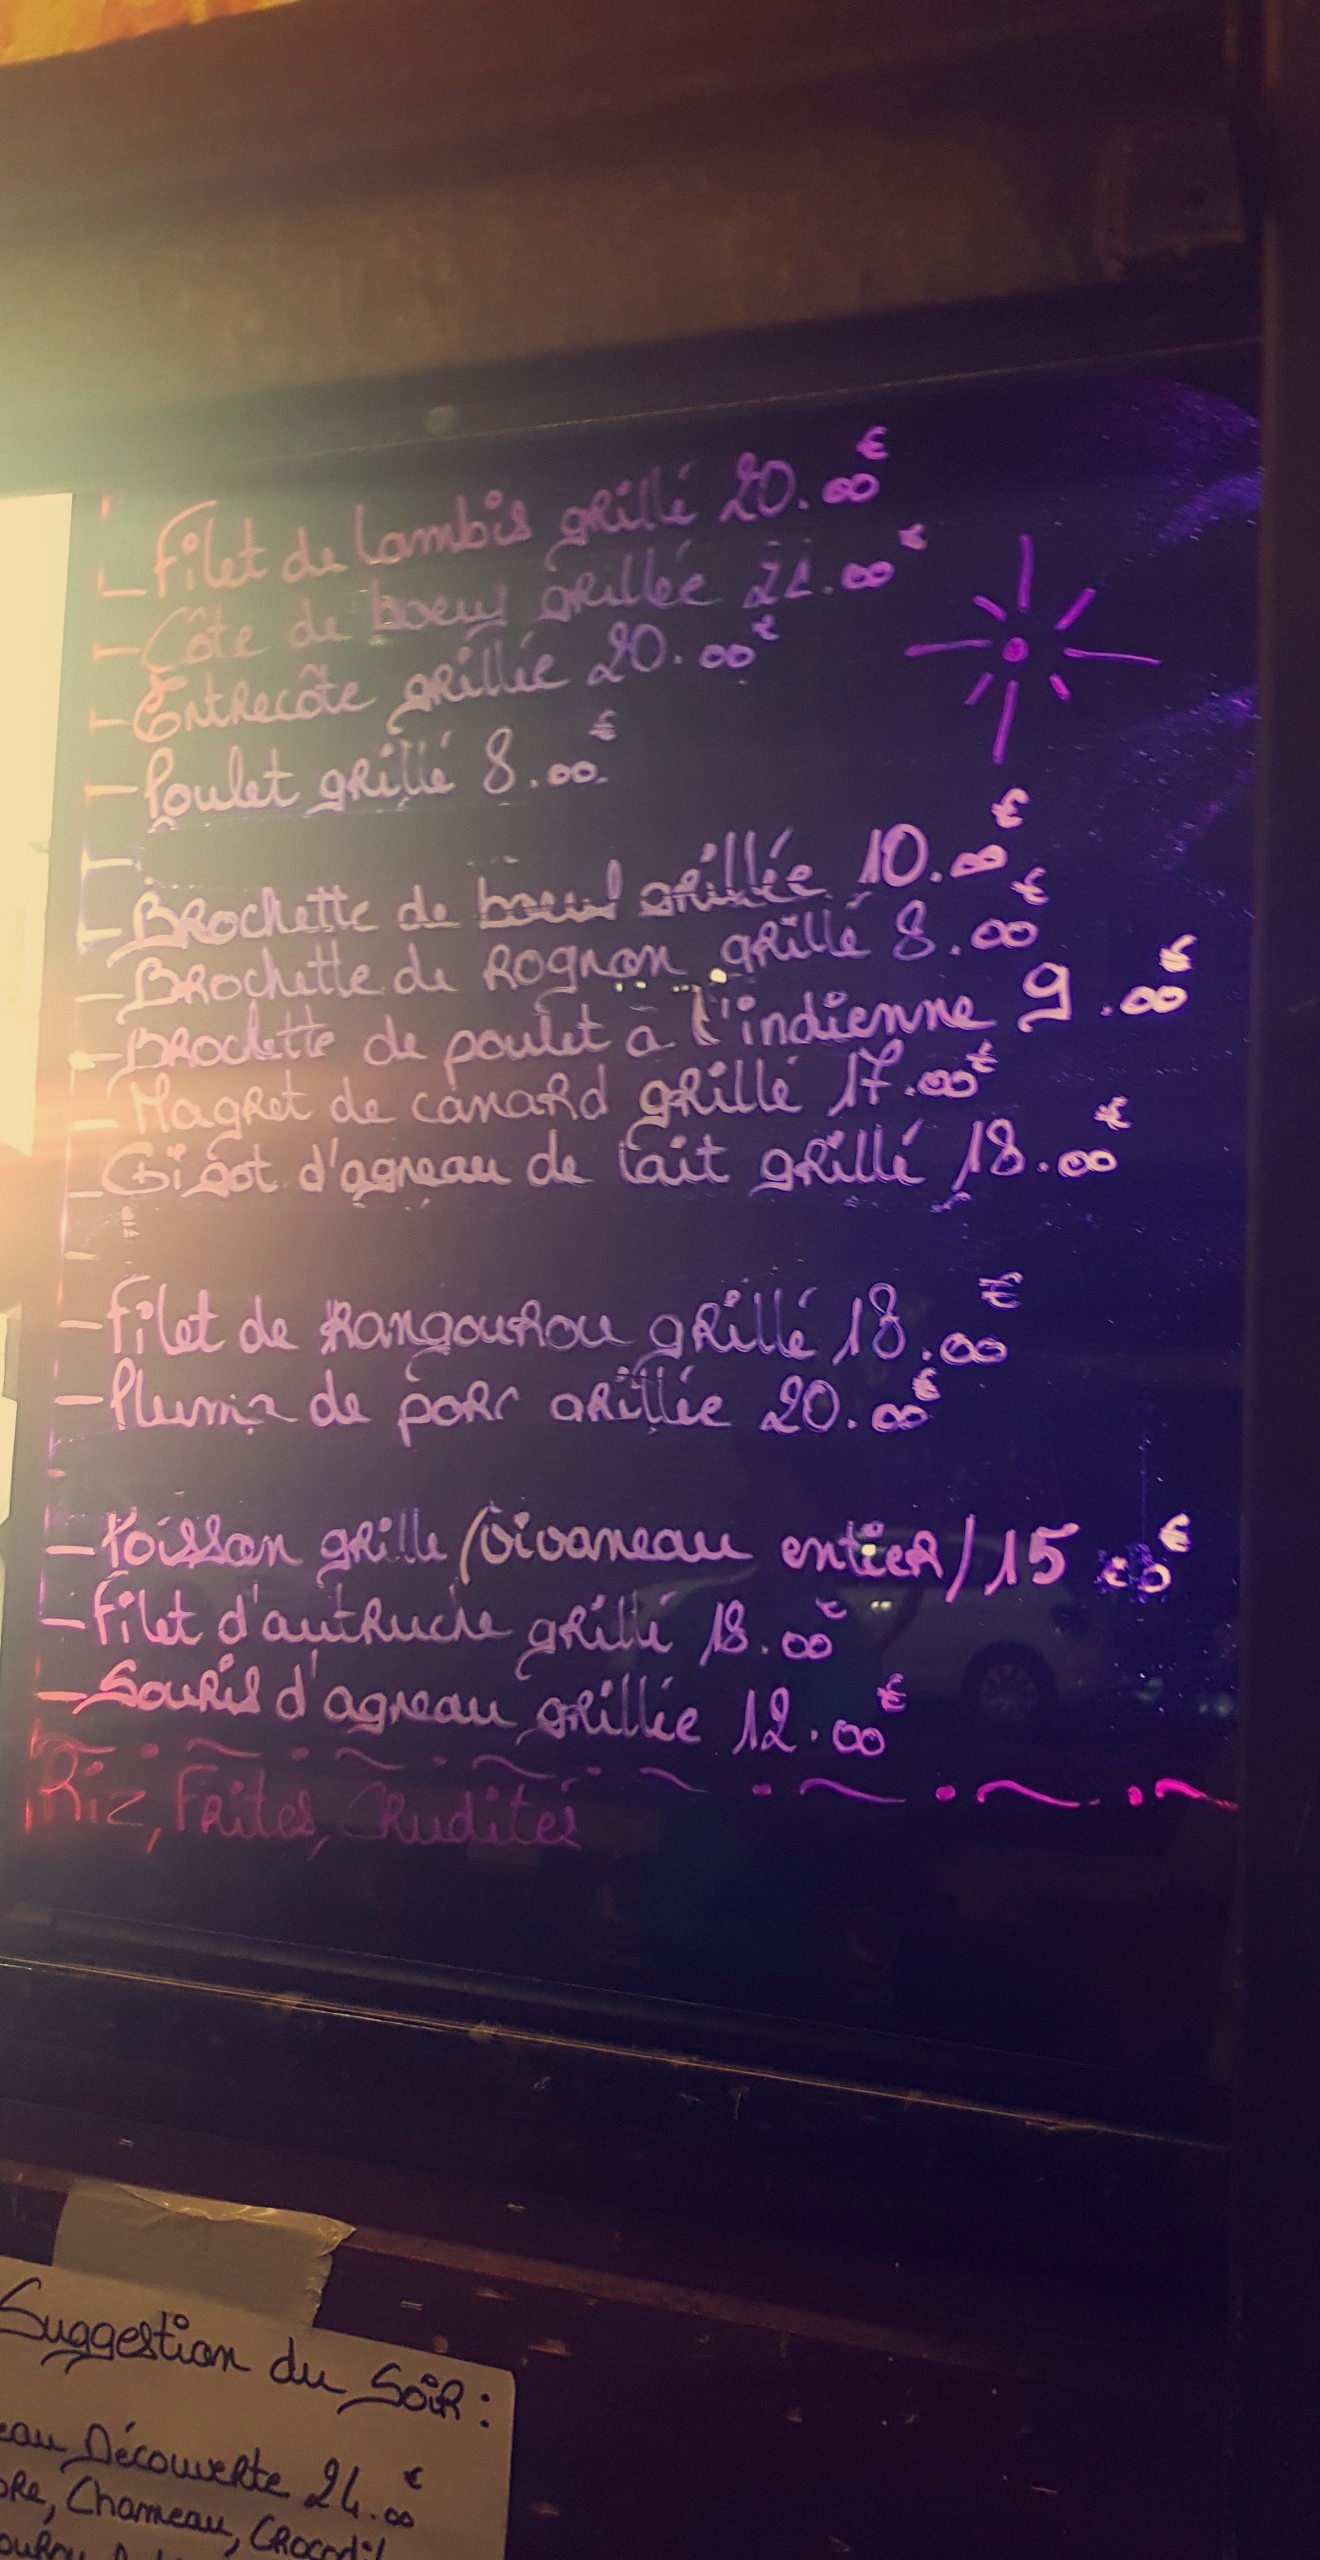 - Filet de Lambis grillé 20.00€
- Côte de boeuf grillée 21.00€
- Entrecôte grillée 20.00€
- Poulet grillé 8.00€
- Brochette de boeuf grillée 10.00€
- Brochette de Rognon grillé 8.00€
- Brochette de poulet à l'indienne 9.00€
- Magret de canard grillé 17.00€
- Gigot d'agneau de lait grillé 18.00€
- Filet de Kangourou grillé 18.00€
- Pluma de porc grillée 20.00€
- Poisson grillé (vivaneau entier) 15.00€
- Filet d'autruche grillé 18.00€
- Souris d'agneau grillée 12.00€
Riz, Frites, Crudités
Suggestion du Soir:
Découverte 24.00€
Chameau,